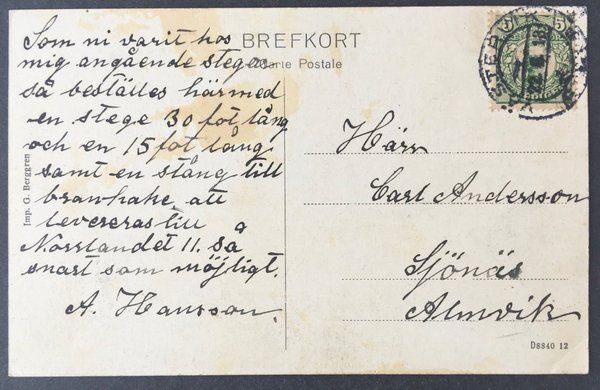 BREFKORT
Carte Postale
Som ni varit hos
mig angående stegar
så beställes härmed
en stege 30 fot lång
och en 15 fot lång
samt en stång till
branhake att
levereras till
Norrlandet 11. så
snart som möjligt.
A. Hansson.
Härr
Carl Andersson
Sjönäs
Almvik
Imp. G. Berggren
D8840 12
VÄSTERVIK
5